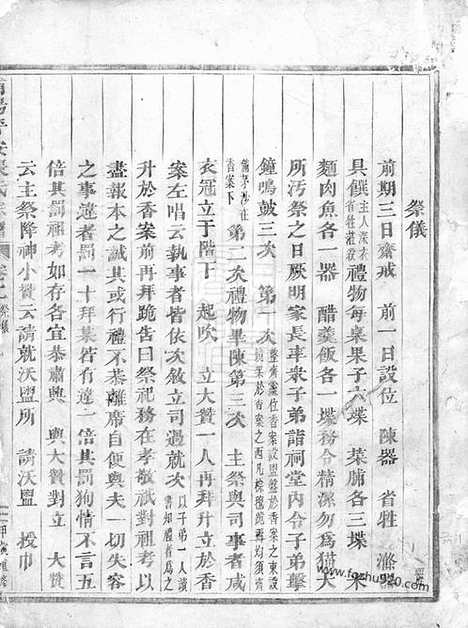 祭儀
前期三日齋戒　前一日設位　陳器　省牲　滌器
具饌主人深衣省牲蒞殺禮物每桌果子六楪　菜脯各三楪　米
麵肉魚各一器　醋羹飯各一楪務令精潔勿爲猫犬
所污祭之日厥明家長率衆子弟詣祠堂内令子弟擊
鐘鳴鼓三次　第一次
香案下第二次禮物畢陳第三次　主祭與司事者咸
衣冠立于階下　起吹　立大贊一人再拜升立于香
案左唱云執事者皆依次敘立司過就次以子弟一人讀書知禮者爲之
升於香案前再拜跪告曰祭祀務在孝敬祇對祖考以
盡報本之誠其或行禮不恭離席自便與夫一切失容
之事違者罰一十拜某若有一倍其罰狥情不言五
倍其罰祖考如存各宜恭肅興　興大贊對立　大贊
云主祭降神小贊云請就沃盥所　請沃盥　授巾